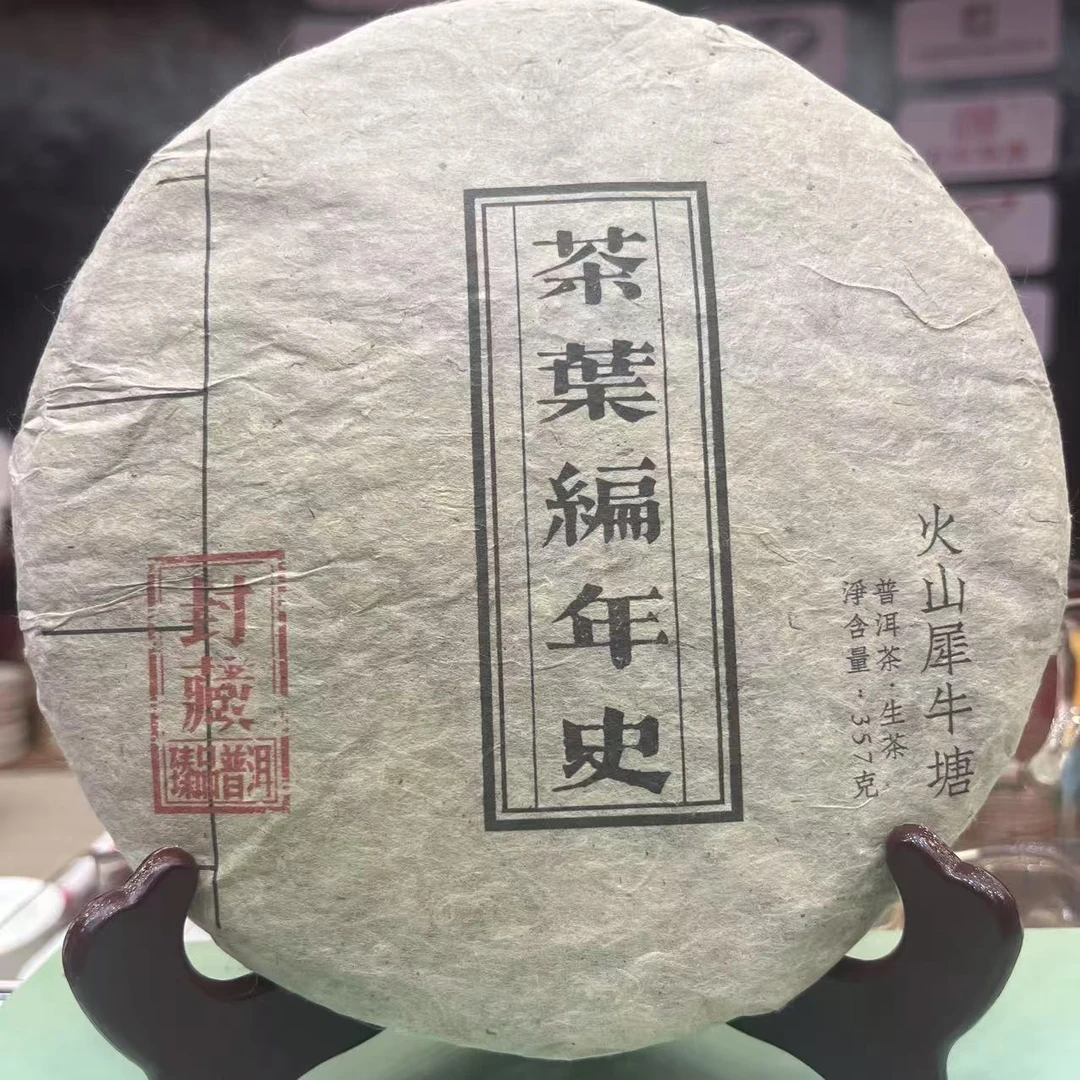 火山犀牛塘
普洱茶·生茶
淨含量:357克
茶葉編年史
封藏
臻品普洱